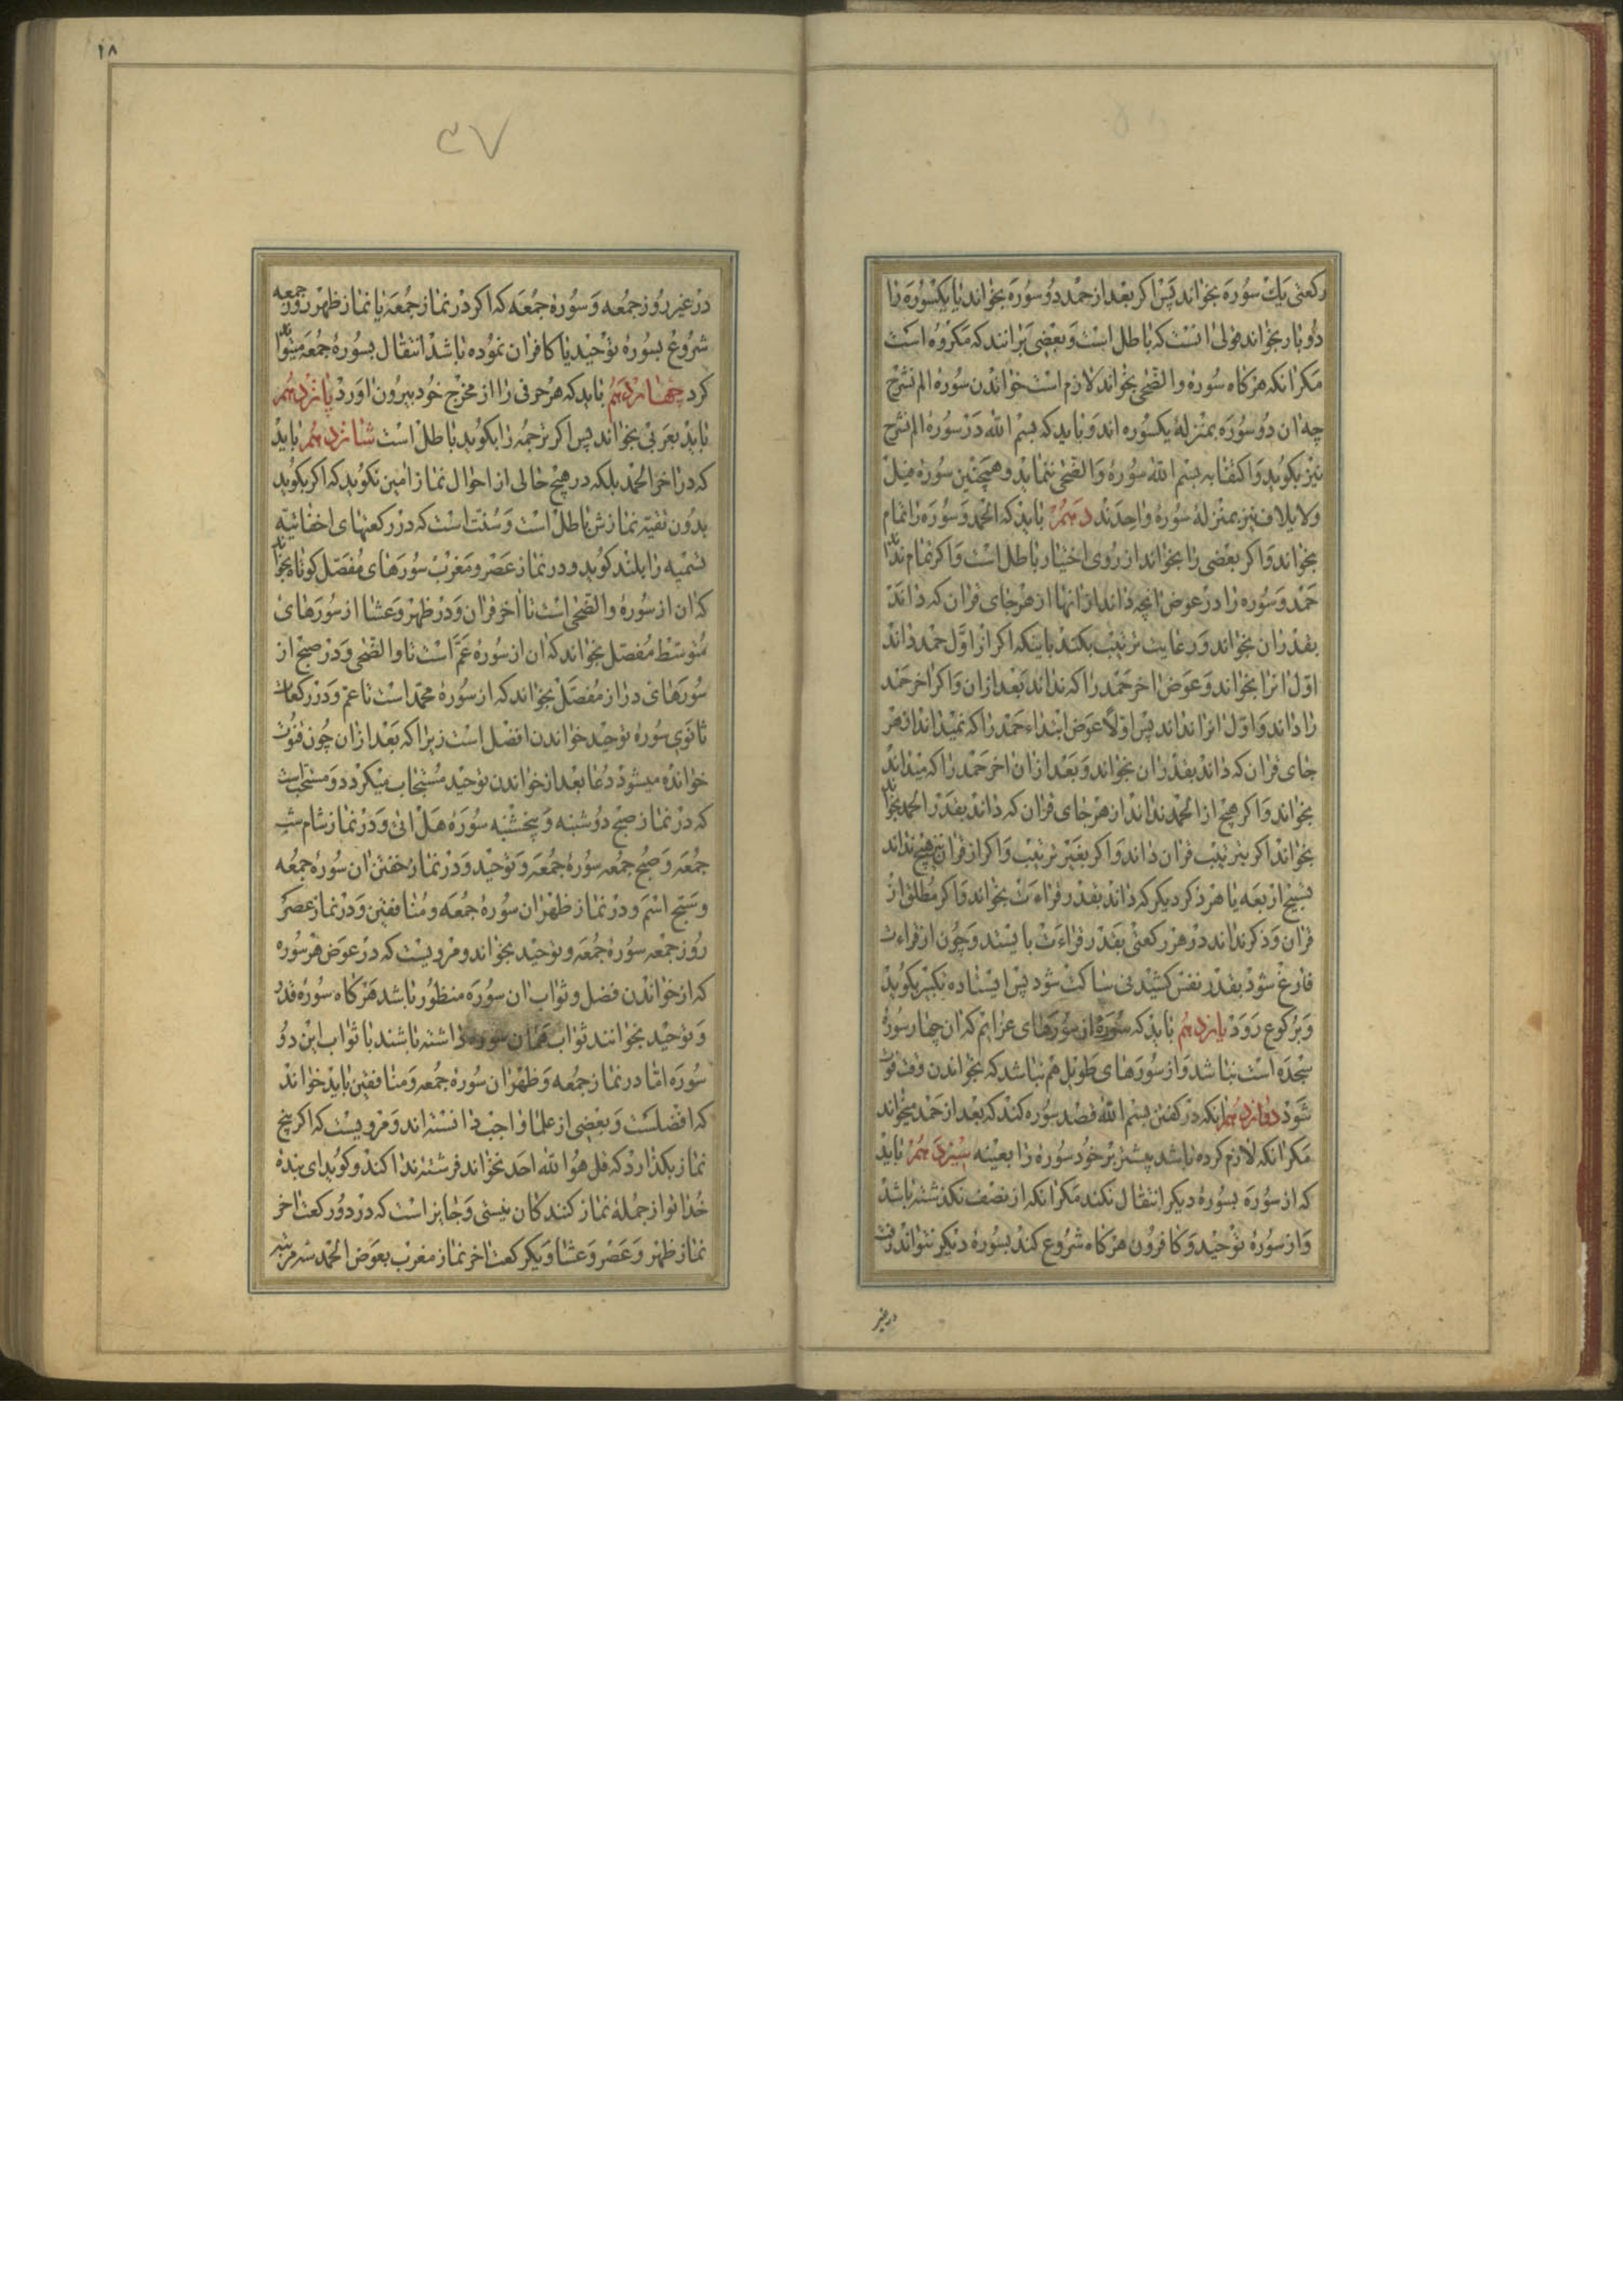 رکعتی یک سوره بخواند پس اکر بعد از حمد دو سوره بخواند یا یکسوره را
دو بار بخواند قولی انست که باطل است و بعضی برانند که مکروه است
مکر انکه هرکاه سوره والضحی بخواند لازم است خواندن سوره الم نشرح
چه ان دو سوره بمنزلهٔ یکسوره اند و باید که بسم الله در سورهٔ الم نشرح
نیز بکوید و اکتفا به بسم الله سورهٔ والضحی ننماید و همچنین سوره فیل
و لایلاف نیز بمنزلهٔ سورهٔ واحدند دهم باید که الحمد و سوره را تمام
بخواند و اکر بعضی را بخواند از روی اختیار باطل است و اکر تمام نداند
حمد و سوره را در عوض انچه داند از انها از هر جای قران که داند
بقدر ان بخواند و رعایت ترتیب بکند باینکه اکر از اول حمد داند
اول انرا بخواند و عوض اخر حمد را که نداند بعد از ان و اکر اخر حمد
را داند و اول انرا نداند پس اولا عوض ابتداء حمد را که نمیداند از هر
جای قران که داند بقدر ان بخواند و بعد از ان اخر حمد را که میداند
بخواند و اکر هیچ از الحمد نداند از هر جای قران که داند بقدر الحمد بخواند
بخواند اکر بترتیب قران داند و اکر بغیر ترتیب و اکر از قران نیز هیچ نداند
تسبیح اربعه یا هر ذکر دیکر که داند بقدر قراءت بخواند و اکر مطلق از
قران و ذکر نداند در هر رکعتی بقدر قراءت بایستد و چون از قراءت
فارغ شود بقدر نفس کشیدنی ساکت شود پس ایستاده تکبیر بکوید
و برکوع رود یازدهم باید که سوره از سورهای عزایم که ان چهار سورهٔ
سجده است نباشد و از سورهای طویل هم نباشد که بخواندن وقت فوت
شود دوازدهم انکه در کفتن بسم الله قصد سوره کند که بعد از حمد میخواند
مکر انکه لازم کرده باشد پیشتر بر خود سورهٔ را بعینه سیزدهم باید
که از سوره بسورهٔ دیکر انتقال نکند مکر انکه از نصف نکذشته باشد
و از سورهٔ توحید و کافرون هرکاه شروع کند بسورهٔ دیکر نتواند رفت
در غیر
١٨
٣٧
در غیر روز جمعه و سورهٔ جمعه که اکر در نماز جمعه یا نماز ظهر روز جمعه
شروع بسورهٔ توحید یا کافران نموده باشد انتقال بسورهٔ جمعه میتواند
کرد چهاردهم باید که هر حرفی را از مخرج خود بیرون اورد پانزدهم
باید بعربی بخواند پس اکر ترجمه را بکوید باطل است شانزدهم باید
که در اخر الحمد بلکه در هیچ حالی از احوال نماز امین نکوید که اکر بکوید
بدون تقیه نمازش باطل است و سنت است که در رکعتهای اخفاتیه
تسمیه را بلند کوید و در نماز عصر و مغرب سورهای مفصل کوتاه بخواند
که ان از سورهٔ والضحی است تا اخر قران و در ظهر و عشا از سورهای
متوسط مفصل بخواند که ان از سورهٔ عم است تا والضحی و در صبح از
سورهای دراز مفصل بخواند که از سورهٔ محمد است تا عم و در رکعات
ثانوی سورهٔ توحید خواندن افضل است زیرا که بعد از ان چون قنوت
خوانده میشود دعا بعد از خواندن توحید مستجاب میکردد و مستحبست
که در نماز صبح دوشنبه و پنجشنبه سورهٔ هل اتی و در نماز شام شب
جمعه و صبح جمعه سورهٔ جمعه و توحید و در نماز خفتن ان سورهٔ جمعه
و سبح اسم و در نماز ظهر ان سورهٔ جمعه و منافقین و در نماز عصر
روز جمعه سورهٔ جمعه و توحید بخواند و مرویست که در عوض هر سوره
که از خواندن فضل و ثواب ان سوره منظور باشد هرکاه سورهٔ قدر
و توحید بخوانند ثواب همان سوره داشته باشند با ثواب این دو
سوره اما در نماز جمعه و ظهر ان سورهٔ جمعه و منافقین باید خواند
که افضلست و بعضی از علما واجب دانسته اند و مرویست که اکر پنج
نماز بکذارد که قل هو الله احد نخواند فرشته ندا کند و کوید ای بندهٔ
خدا تو از جملهٔ نماز کنندکان نیستی و جایز است که در دو رکعت اخر
نماز ظهر و عصر و عشا و یکرکعت اخر نماز مغرب بعوض الحمد سه مرتبه